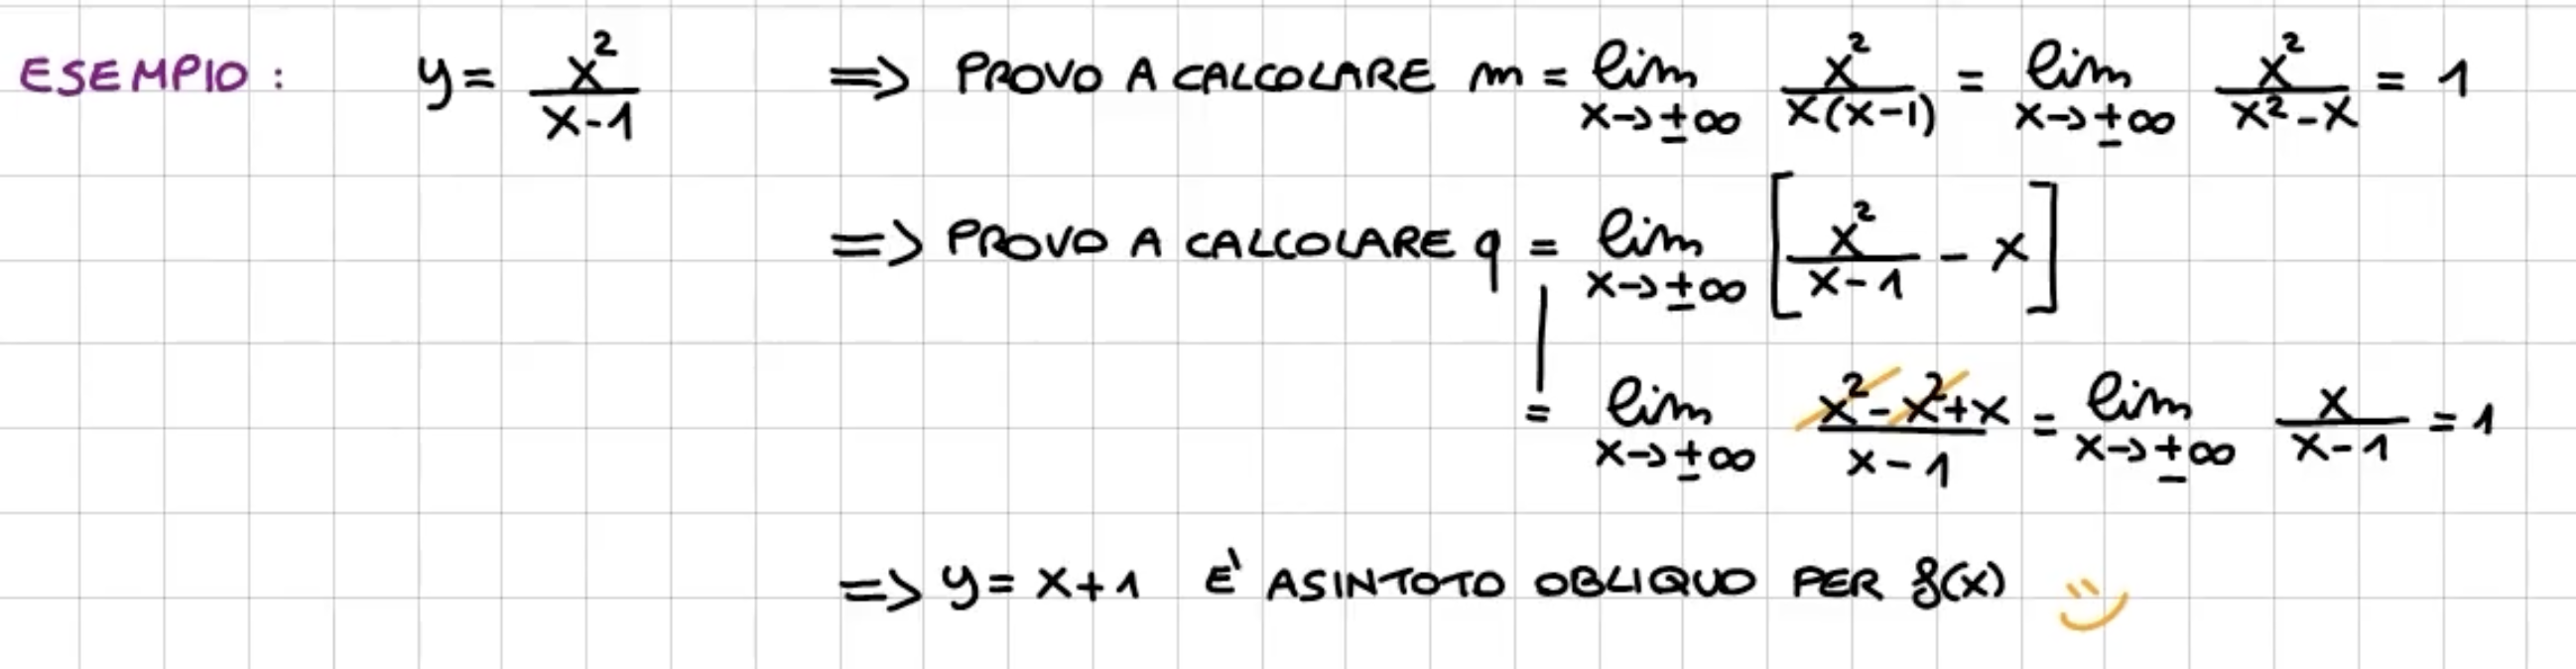 ESEMPIO: y = x²/(x-1) => PROVO A CALCOLARE m = lim x→±∞ x²/(x(x-1)) = lim x→±∞ x²/(x²-x) = 1
=> PROVO A CALCOLARE q = lim x→±∞ [x²/(x-1) - x]
= lim x→±∞ (x²-x²+x)/(x-1) = lim x→±∞ x/(x-1) = 1
=> y = x+1 E' ASINTOTO OBLIQUO PER f(x)